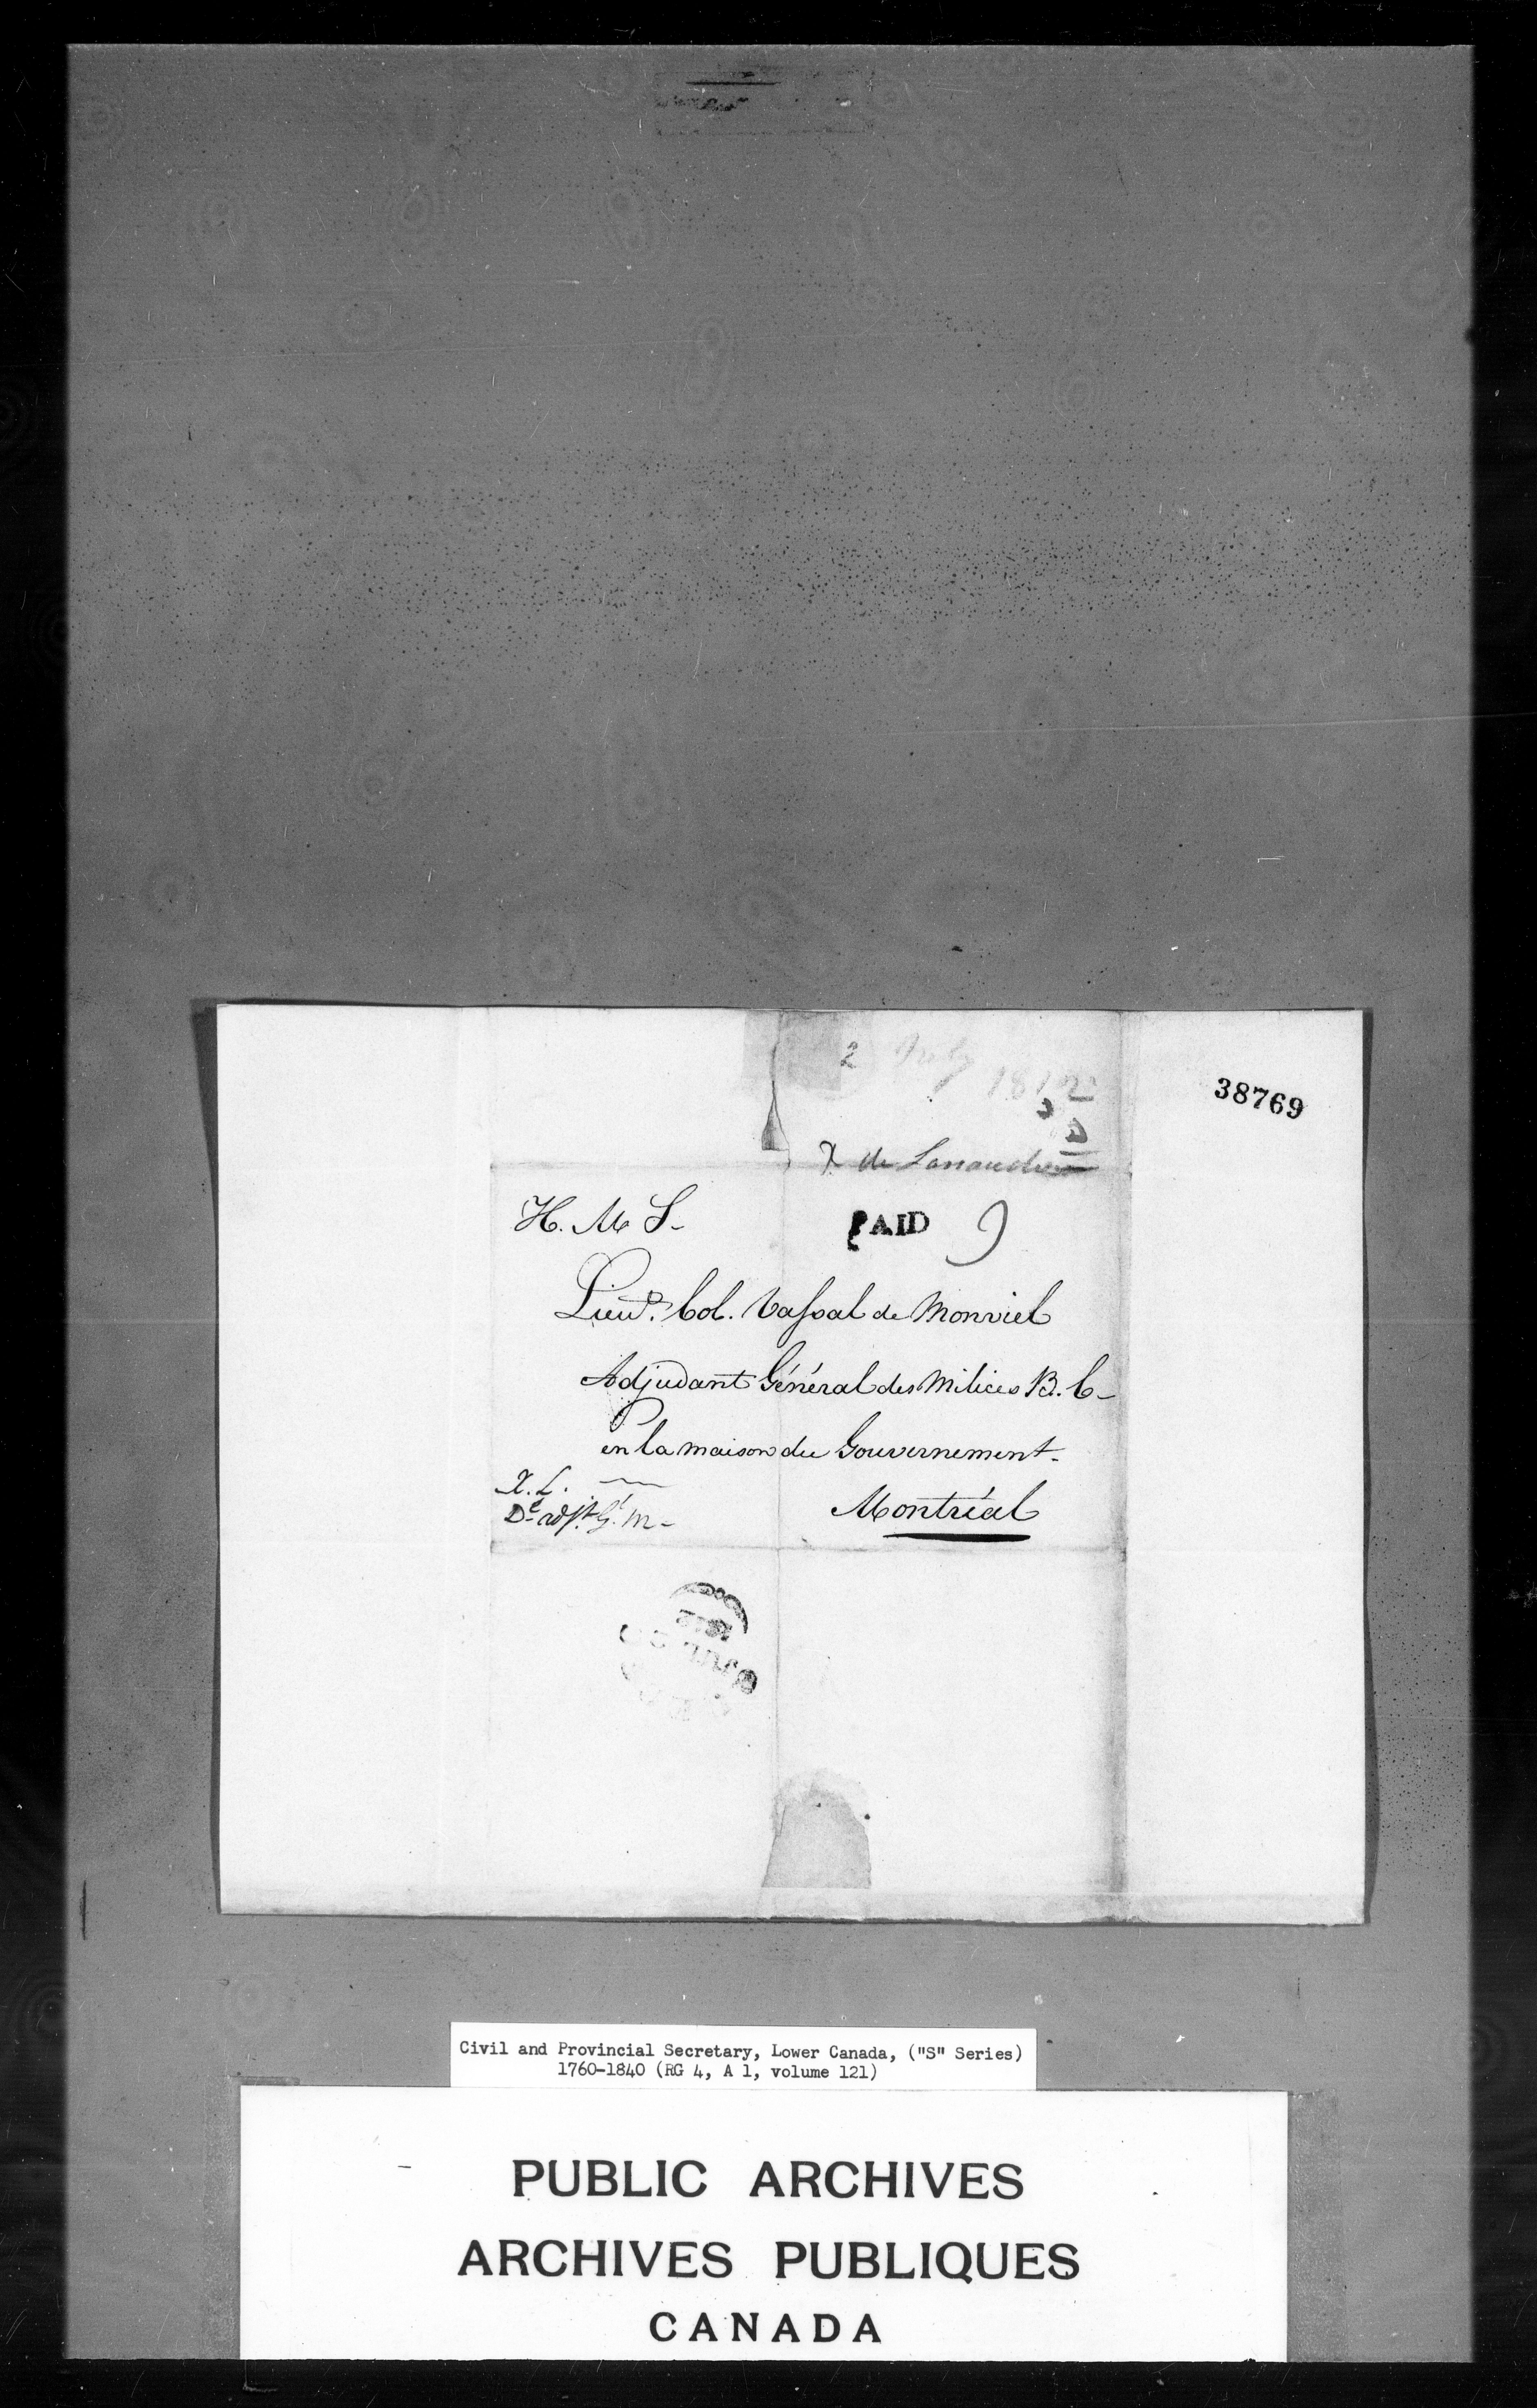 2 July 1812
38769
X de Lanaudière
H. M S-
PAID 9
Lieut. Col. Vassal de Monviel
Adjudant Général des Milices B. C-
en la maison du Gouvernement-
X. L.
Dé. adjt. Gl. M-
Montréal
Civil and Provincial Secretary, Lower Canada, ("S" Series)
1760-1840 (RG 4, A 1, volume 121)
PUBLIC ARCHIVES
ARCHIVES PUBLIQUES
CANADA